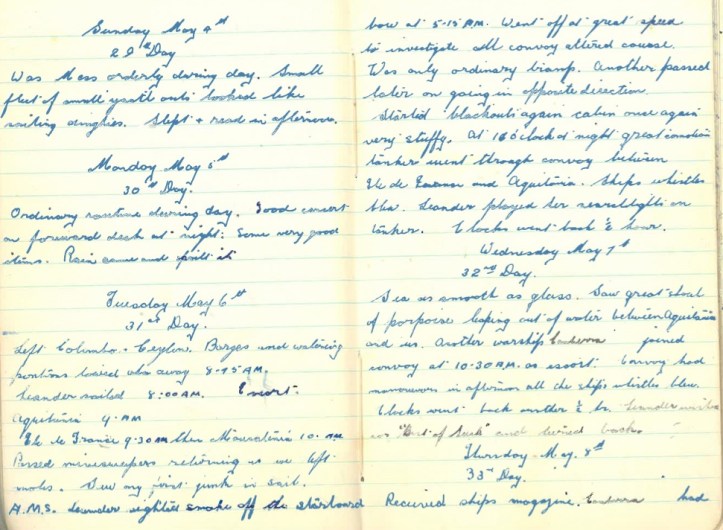 Sunday May 4th
29th Day
Was Mess orderly during day. Small
fleet of small yacht outs looked like
sailing dinghies. Slept + read in afternoon.
Monday May 5th
30th Day.
Ordinary routine during day. Good concert
on forward deck at night. Some very good
items. Rain came and spoilt it
Tuesday May 6th
31st Day.
Left Colombo. Ceylon. Barges and watering
pontoons towed away 8-45 AM.
Leander sailed 8:00 AM. Escort.
Aquitania 9 AM
Ile de France 9.30 AM then Mauretania 10. AM
Passed minesweepers returning as we left
moles. Saw my first junk in sail.
H.M.S. Leander sighted smoke off the starboard
bow at 5-15 P.M. Went off at great speed
to investigate all convoy altered course.
Was only ordinary tramp. Another passed
later on going in opposite direction.
Started blackouts again cabin once again
very stuffy. At 10 o'clock at night great
tanker went through convoy between
Ile de France and Aquitania. Ships whistles
blew. Leander played her searchlights on
tanker. Clocks went back ½ hour.
Wednesday May 7th
32nd Day.
Sea as smooth as glass. Saw great shoal
of porpoise leaping out of water between Aquitania
and us. Another warship Canberra joined
convoy at 10.30 AM. as escort. Convoy had
manoeuvers in afternoon all the ships whistles blew.
Clocks went back another ½ hr. Leander
us "Best of Luck" and turned back.
Thursday May 8th
33rd Day.
Received ships magazine. Canberra had